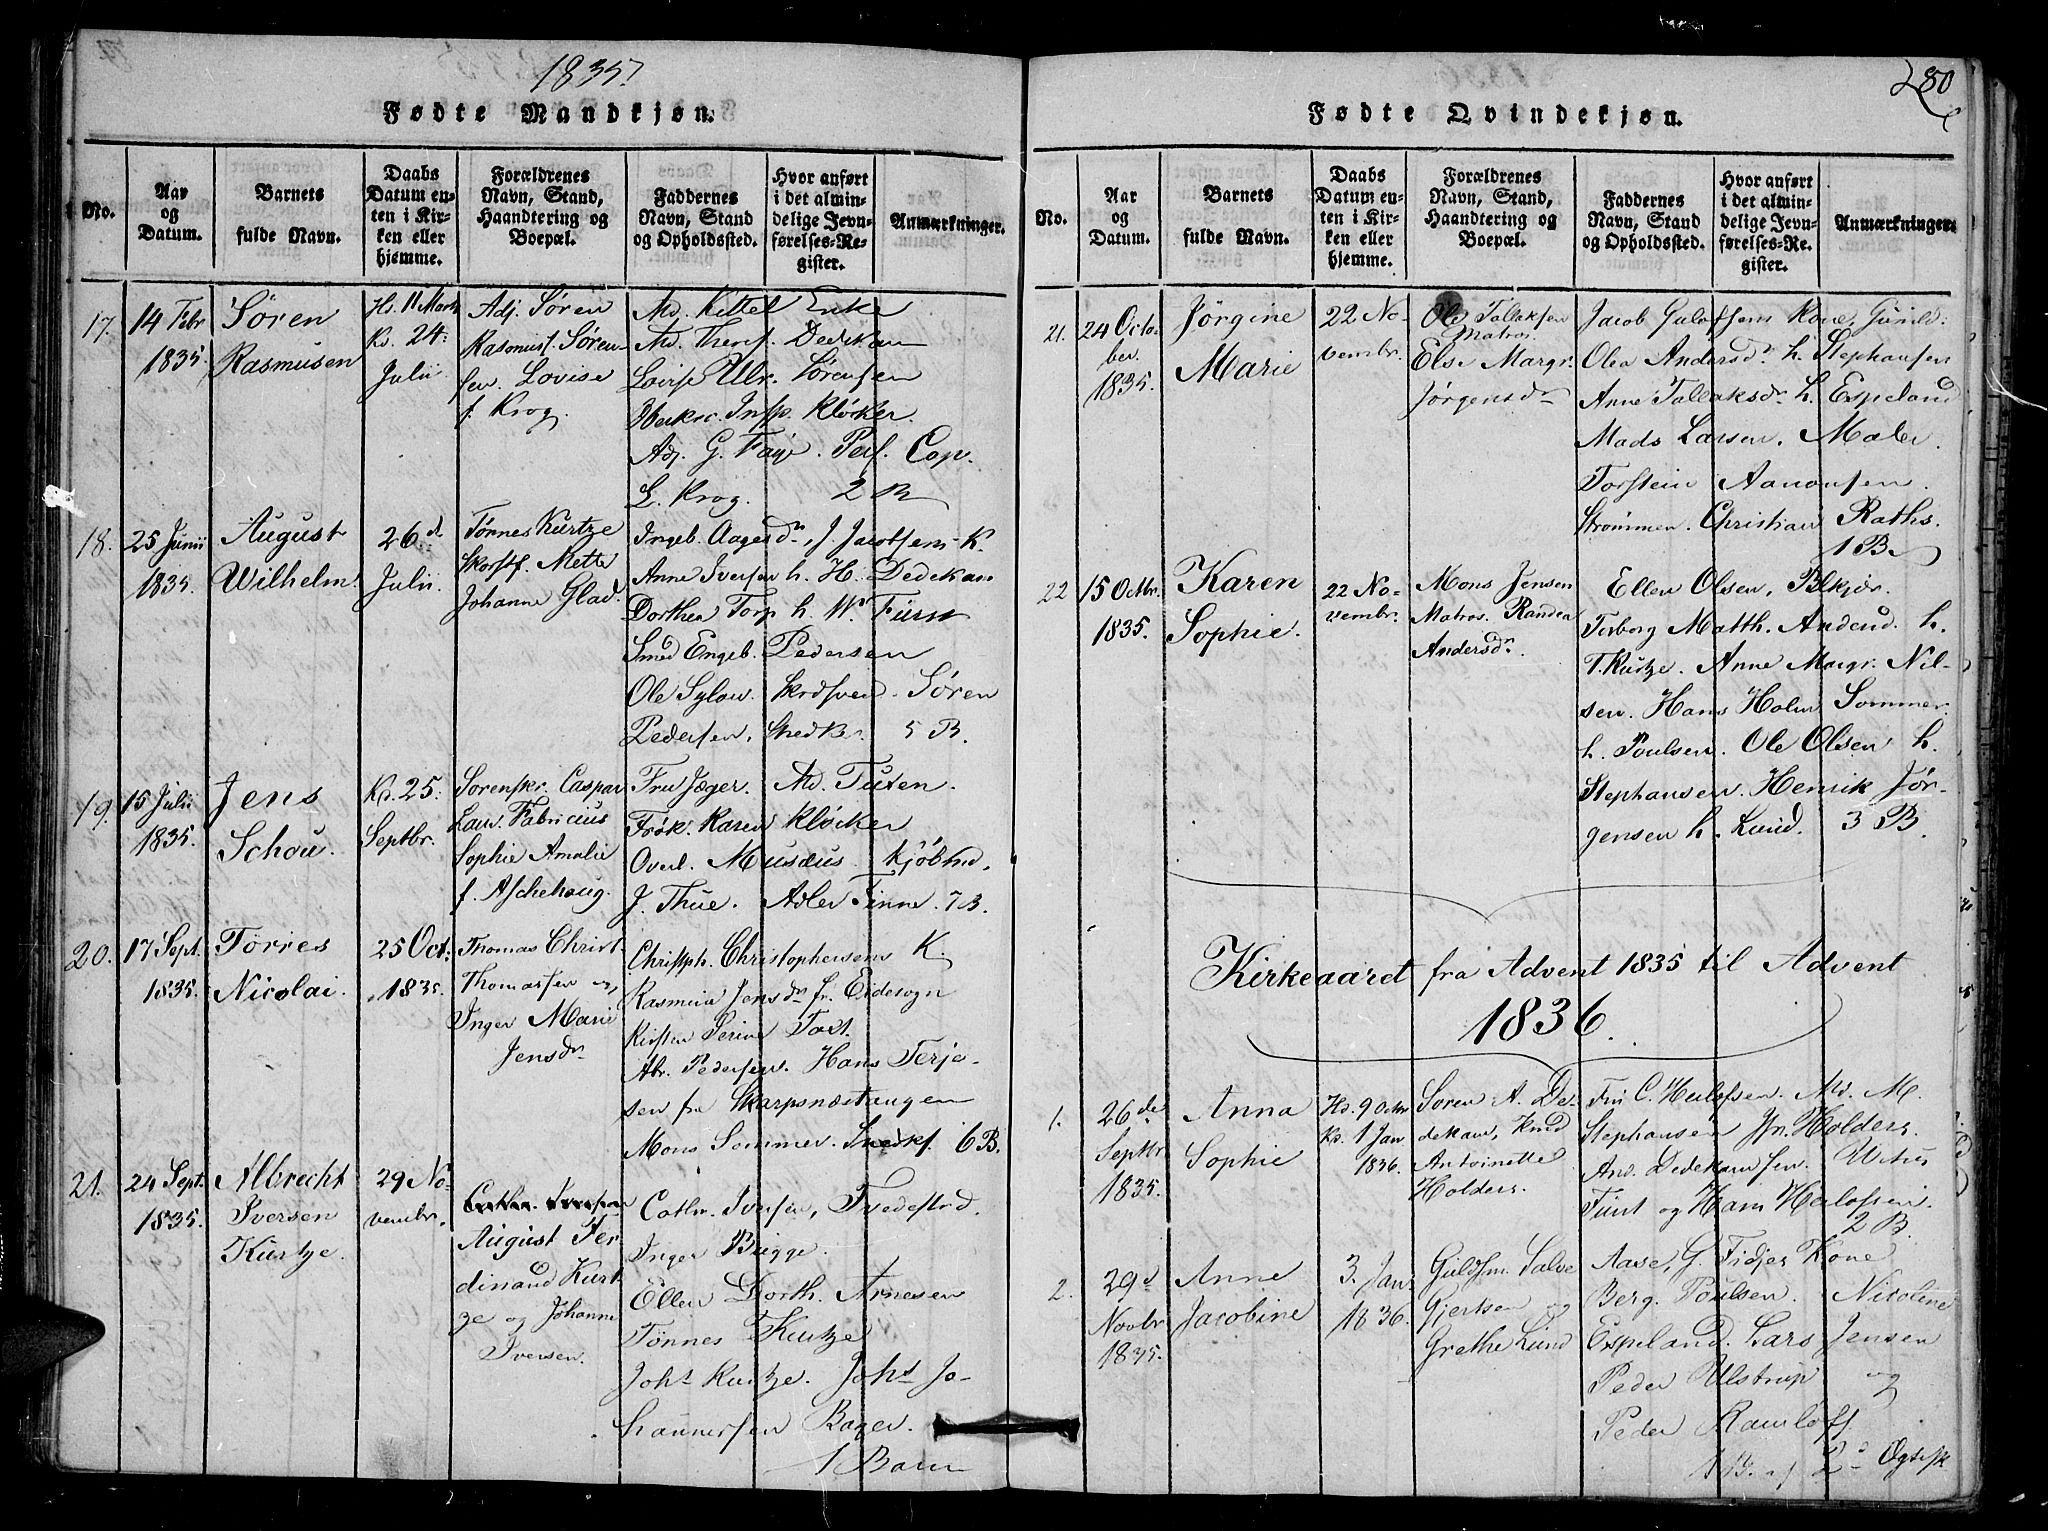 1835.
Fødte Mandkjøn.
No.
Aar og Datum.
Barnets fulde Navn.
Daabs Datum enten i Kirken eller hjemme.
Forældrenes Navn, Stand, Haandtering og Boepæl.
Faddernes Navn, Stand og Opholdssted.
Hvor anført i det almindelige Jevnførelses-Register.
Anmærkninger.
17.
14 Febr
1835.
Søren
Rasmusen
Hd. 11 Marts
Kd. 24:
Julii
Adj. Søren
Rasmuss. Søren-
sen. Lovise
f. Krog.
Md. Kittel Enke
Md. Theres. Dedekam
Lovise Ulr. Sørensen
Insp. Kløcker
Adj. G. Faye. Pers. Cap.
L. Krog. 2 B
18.
25 Junii
1835.
August
Wilhelm.
26d
Julii.
Tønnes Kurtze
Skorstf. Mette
Johanne Glad.
Ingeb. Aagesdr, J. Jacobsens K.
Anne Iversen h. H. Dedekam
Dorthea Torp h. W. Fürst
Smed Engeb. Pedersen
Ole Sylow. Søren
Pedersen, 5 B.
19.
15 Julii
1835.
Jens
Schou.
Kd. 25:
Septbr.
Sorenskr. Caspar
Laur. Fabricius
Sophie Amalie
f. Aschehoug.
Fru Jæger. Md. Tuxen.
Frøk. Karen Kløcker
Overl. Musæus. Kjøbmd.
J. Thue. Adler Finne. 7 B.
20.
17 Sept.
1835.
Torres
Nicolai.
25 Oct:
1835.
Thomas Christ.
Thomassen og
Inger Marie
Jensdr
Christph. Christophersens K.
Rasmine Jensdr fr. Eidesogn
Kirsten Perine
Abr. Pedersen. Hans Terje-
sen fra Skarpsnæstangen
Mons Sommer. Snedkf. 6 B.
21.
24 Sept.
1835.
Albrecht
Iversen
Kurtze.
29 No-
vembr.
August Fer-
dinand Kurt-
ze og Johanne
Iversen.
Cathr. Iversen, Tvedestrd.
Inger Bugge.
Ellen Dorth. Arnesen
Tønnes Kurtze
Johs Kurtze. Johs Jo-
hannessen Bager.
1 Barn
280
Fødte Qvindekjøn.
No.
Aar og Datum.
Barnets fulde Navn.
Daabs Datum enten i Kirken eller hjemme.
Forældrenes Navn, Stand, Haandtering og Boepæl.
Faddernes Navn, Stand og Opholdssted.
Hvor anført i det almindelige Jevnførelses-Register.
Anmærkninger.
21.
24 Octo-
ber
1835.
Jørgine
Marie
22 No-
vembr.
Ole Tallaksen
Matros.
Else Margr.
Jørgensdr
Jacob Gulofsens Kone, Gunild.
Olea Andersdr h. Stephansen
Anne Tallaksdr h. Espeland
Mads Larsen. Maler.
Torstein Aanonsen.
Strømmen. Christian Raths.
1 B.
22
15 Octbr.
1835.
Karen
Sophie.
22 No-
vembr.
Mons Jensen
Matros. Randea
Andersdr.
Ellen Olsen, Blkjær.
Torborg Matth. Andsud. h.
T. Kurtze. Anne Margr. Nil-
sen. Hans Holm Sommer
h. Poulsen. Ole Olsen h.
Stephansen. Henrik Jør-
gensen h. Lund. 3 B.
Kirkeaaret fra Advent 1835 til Advent
1836.
1.
26de
Septbr.
1835.
Anna
Sophie
Hd. 9 Octbr
Kd. 1 Jan
1836.
Soren A. De-
dekam, Knud
Antoinette
Holders.
Fru C. Herlofsen. Md. M.
Stephansen Jfr. Holders.
And. Dedekam sen.
Fürst og Hans Herlofsen
2 B.
2.
29d
Novbr
1835.
Anne
Jacobine
3. Jan
1836.
Guldsm. Salve
Gjertsen og
Grethe Lund
Aase, G. Fidjes Kone
Berg. Poulsen. Nicoline
Espeland. Lars Jensen
Peder Ulstrup og
Peder Ramløff.
1 B. af 2d Ægtesk